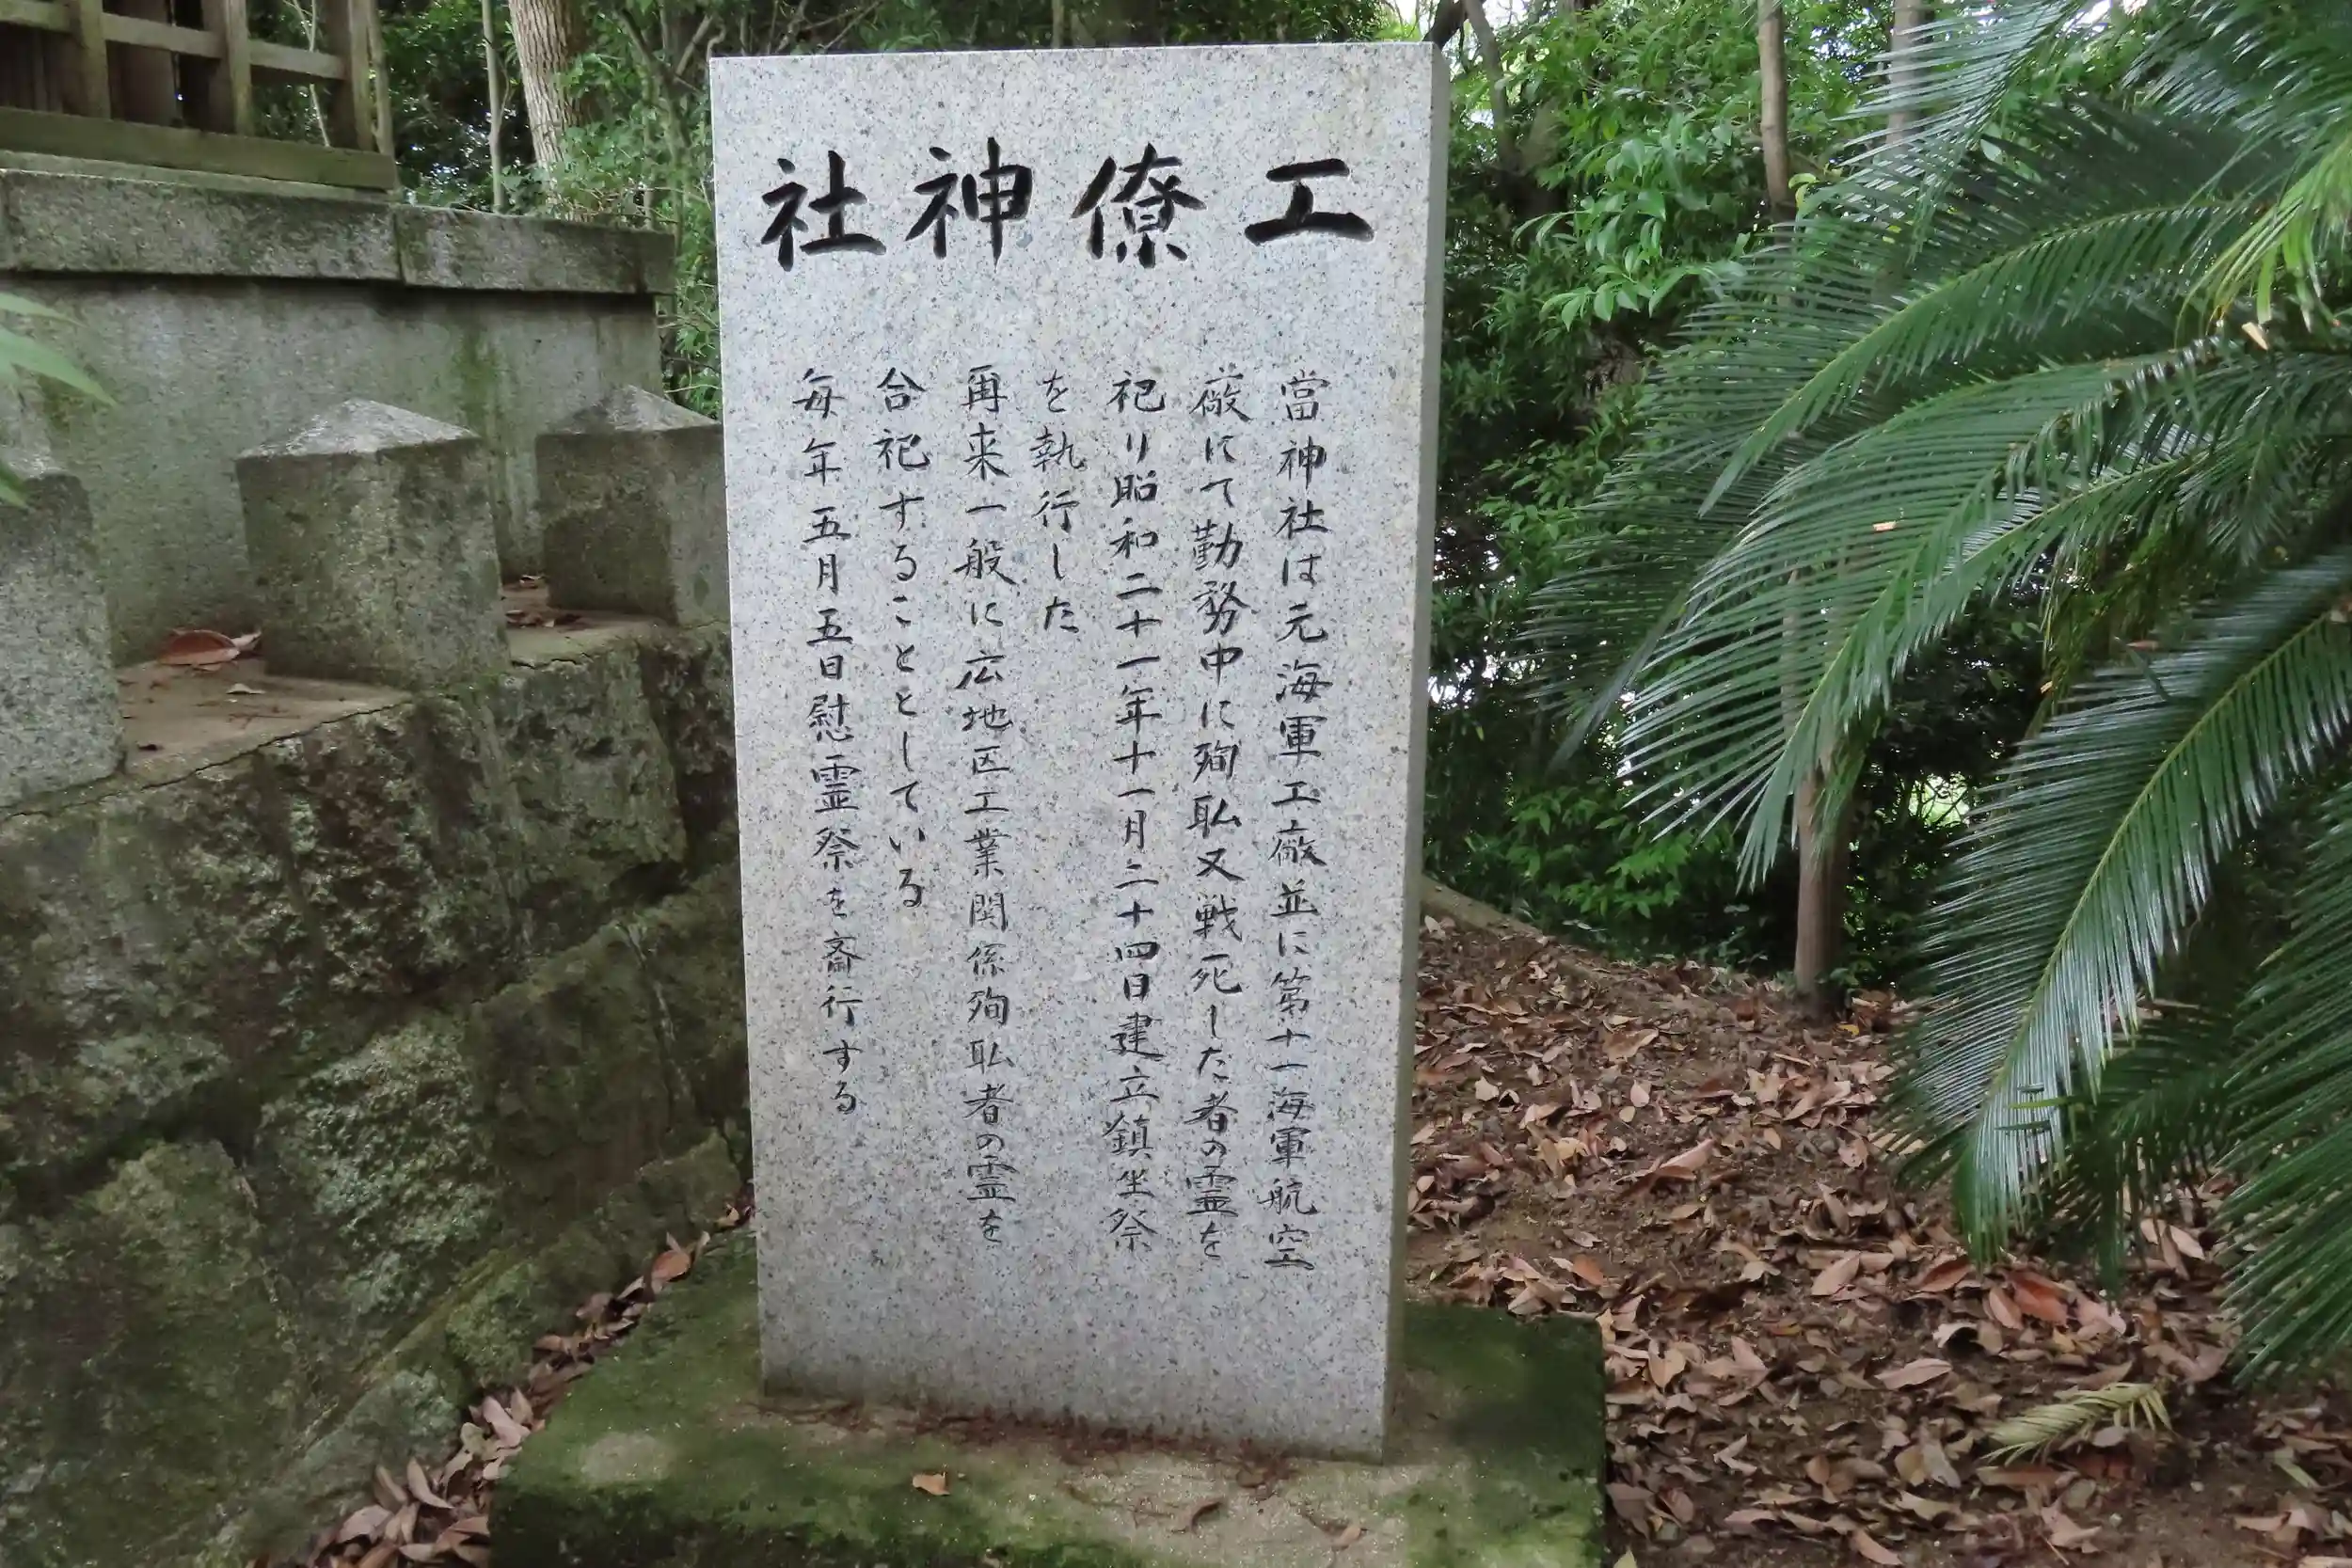 工僚神社
當神社は元海軍工廠並に第十一海軍航空
廠にて勤務中に殉耺又戦死した者の霊を
祀り昭和二十一年十一月二十四日建立鎮坐祭
を執行した
再来一般に広地区工業関係殉耺者の霊を
合祀することとしている
毎年五月五日慰霊祭を斎行する